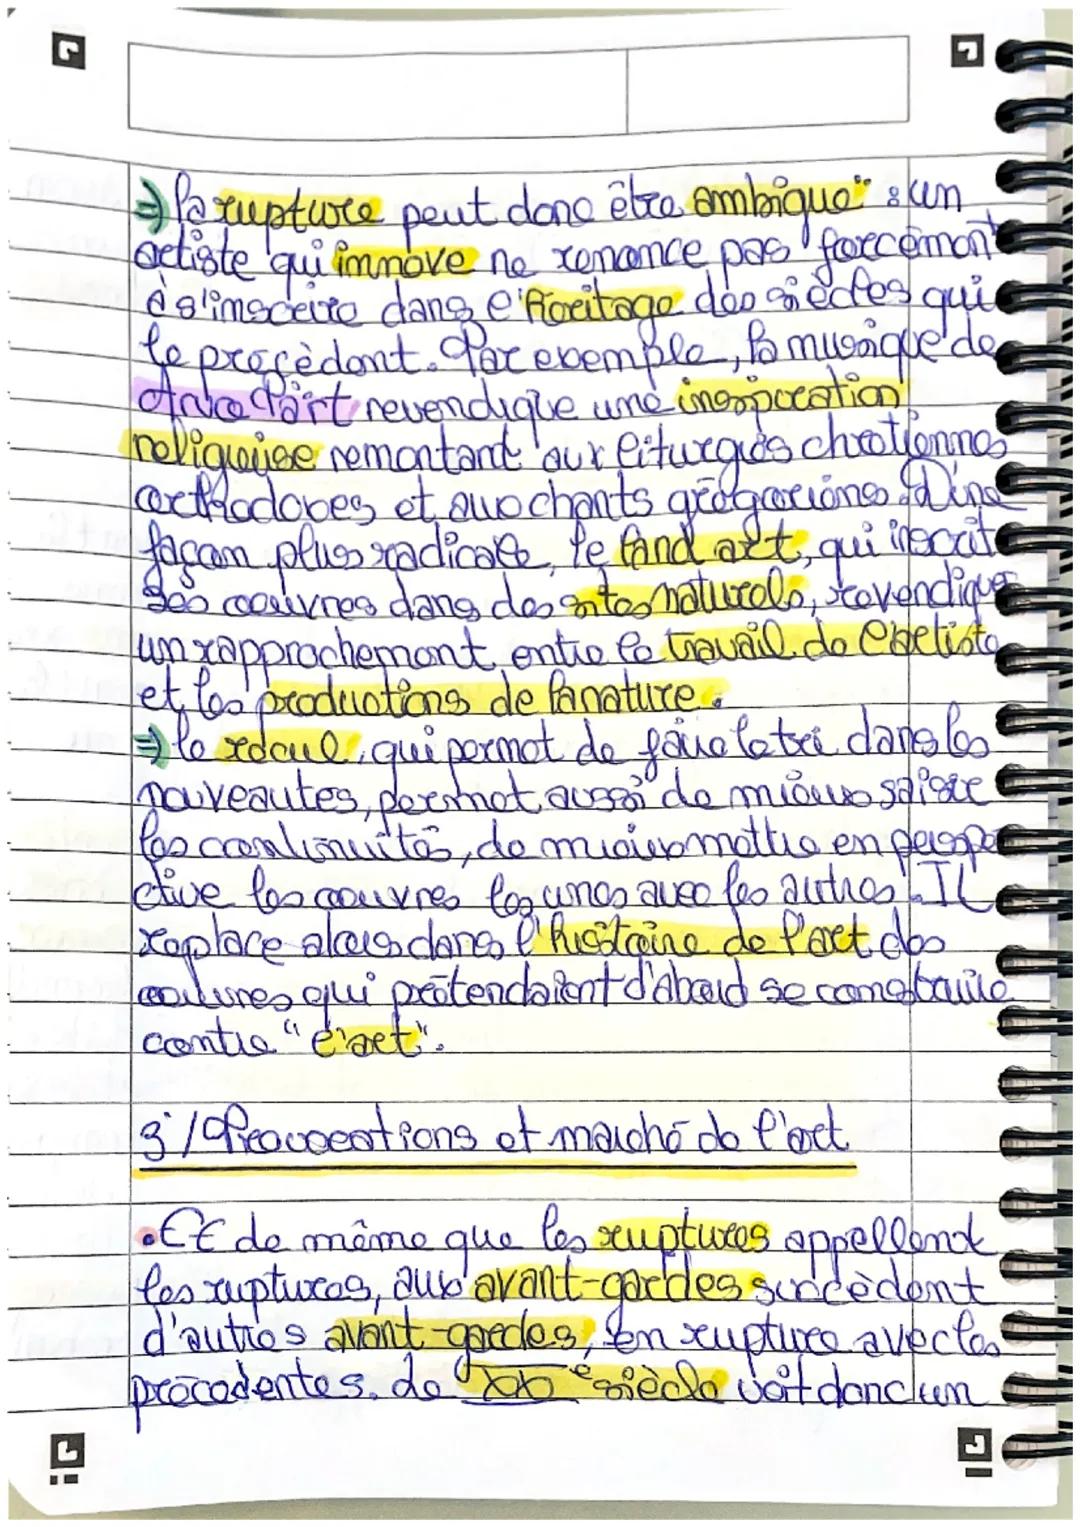 ⇒ la rupture peut donc être ambiguë : un
artiste qui innove ne renonce pas forcément
à s'inscrire dans l'héritage des siècles qui
le précèdent. Par exemple, la musique de
Arvo Pärt revendique une inspiration
religieuse remontant aux liturgies chrétiennes
orthodoxes et aux chants grégoriens. D'une
façon plus radicale, le land art, qui inscrit
ses oeuvres dans des sites naturels, revendique
un rapprochement entre le travail de l'artiste
et les productions de la nature.
⇒ le recul, qui permet de faire le tri dans les
nouveautes, permet aussi de mieux saisir
les continuités, de mieux mettre en perspe
ctive les oeuvres les unes avec les autres. Il
replace alors dans l'histoire de l'art des
oeuvres qui prétendaient d'abord se construire
contre "l'art".
3°/ Provocations et marché de l'art
• Et de même que les ruptures appellent
les ruptures, aux avant-gardes succèdent
d'autres avant-gardes, en rupture avec les
précédentes. Le XXe siècle voit donc un